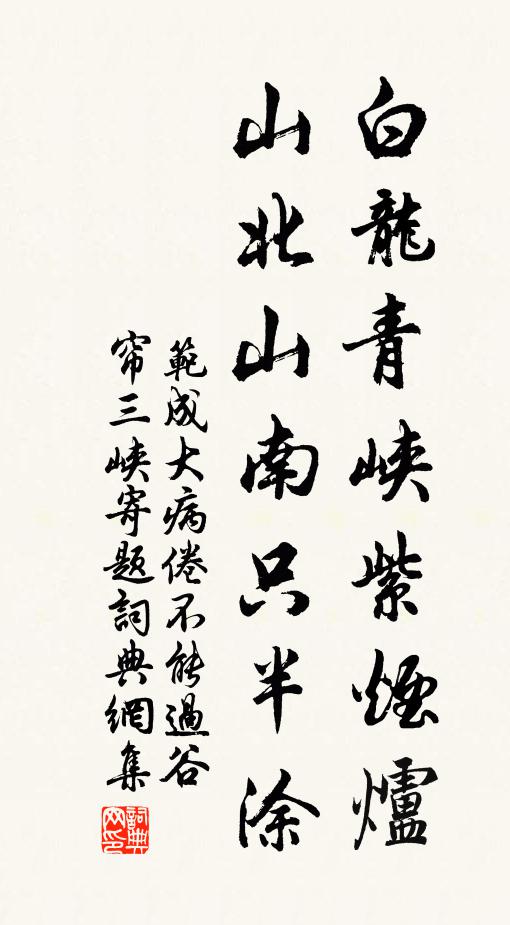 白龍青峽紫煙爐
山北山南只半涂
範成大病倦不能過谷
帘三峽寄題詞典網集
詞典
网印